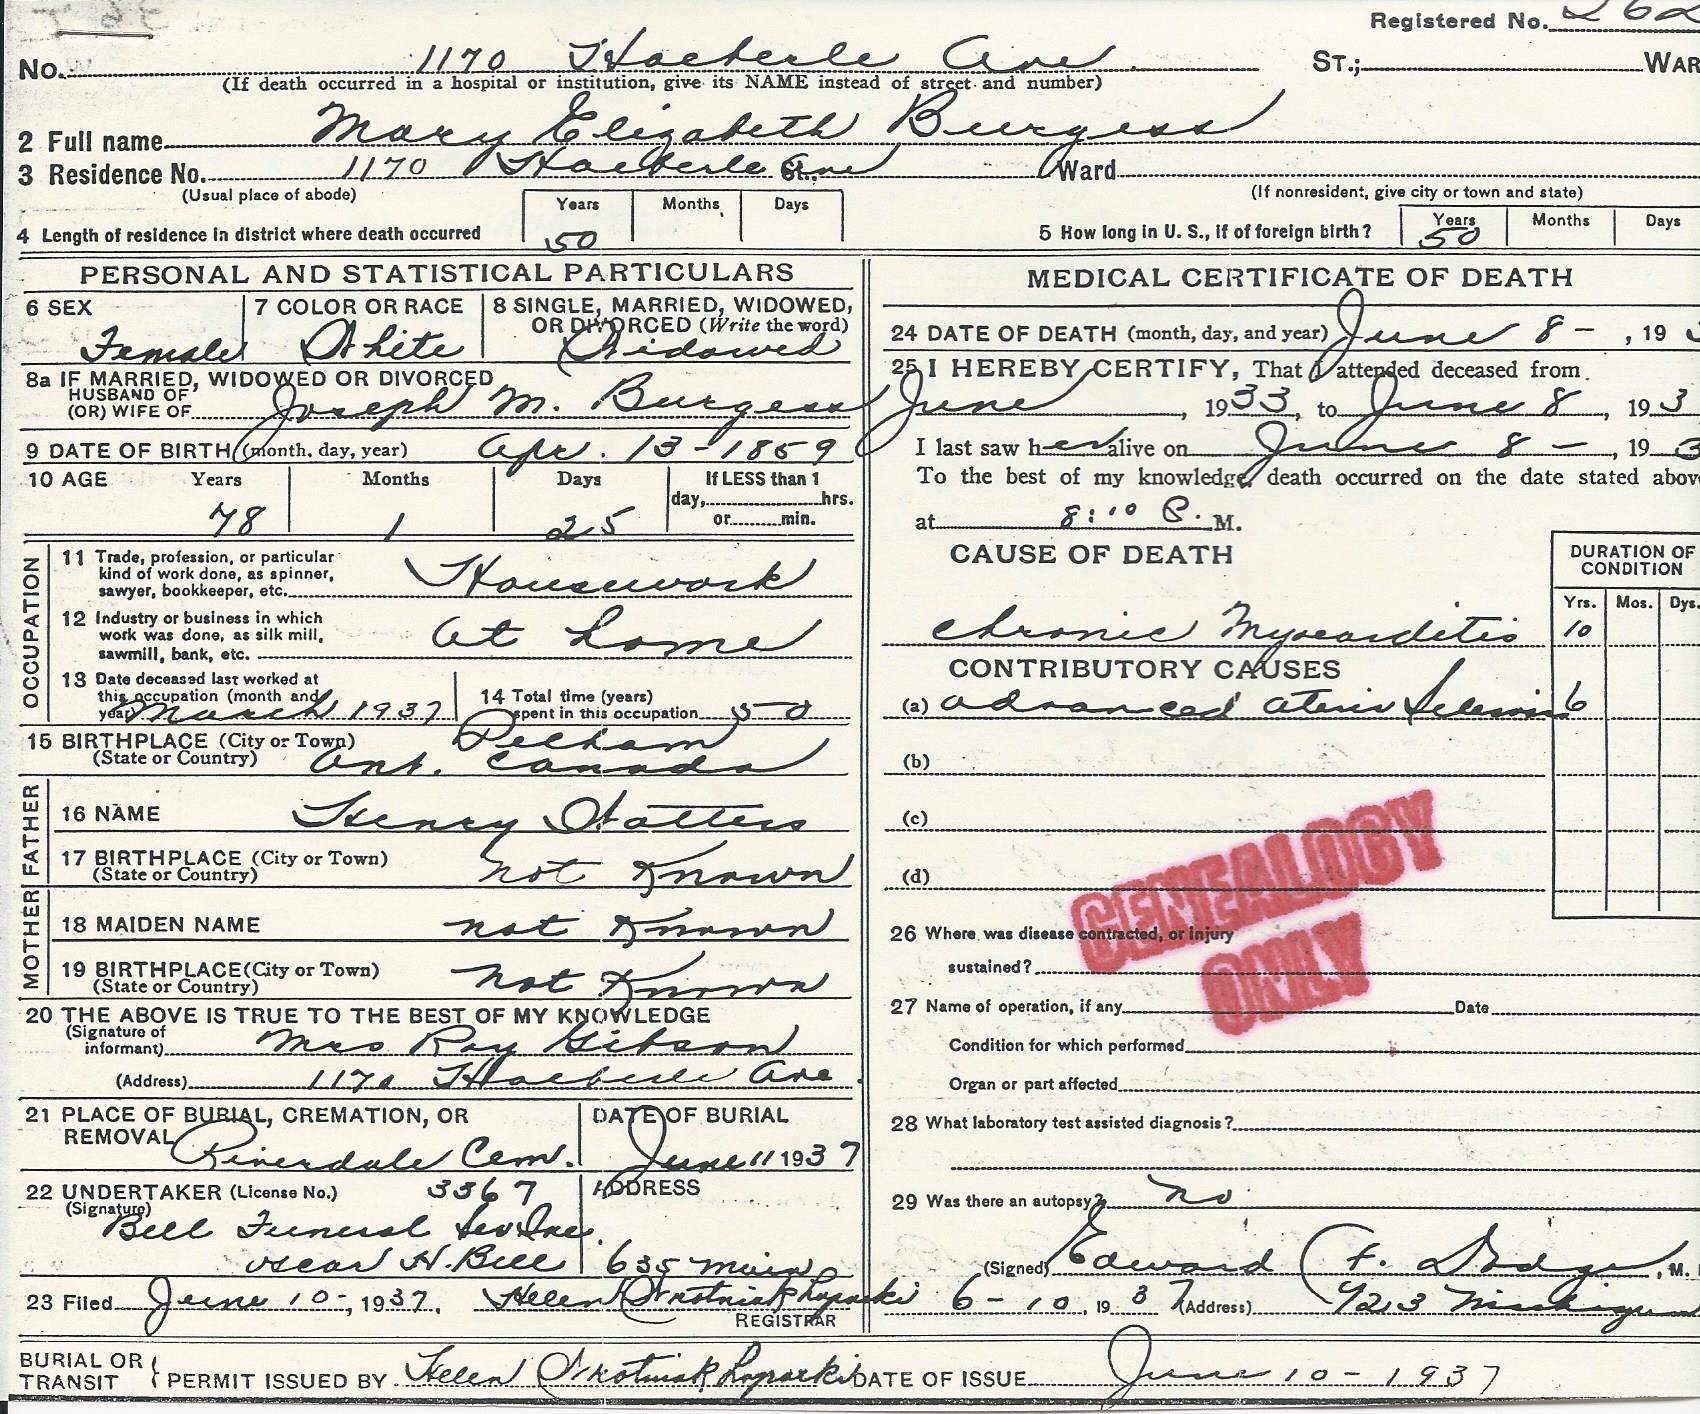 Registered No. 262
No. 1170 Haeberle Ave St.; War
(If death occurred in a hospital or institution, give its NAME instead of street and number)
2 Full name Mary Elizabeth Burgess
3 Residence No. 1170 Haeberle Ave St., Ward
(Usual place of abode) (If nonresident, give city or town and state)
Years Months Days
4 Length of residence in district where death occurred 50
Years Months Days
5 How long in U. S., if of foreign birth? 50
PERSONAL AND STATISTICAL PARTICULARS
6 SEX 7 COLOR OR RACE 8 SINGLE, MARRIED, WIDOWED,
OR DIVORCED (Write the word)
Female White Widowed
8a IF MARRIED, WIDOWED OR DIVORCED
HUSBAND OF
(OR) WIFE OF Joseph M. Burgess
9 DATE OF BIRTH (month, day, year) Apr. 13 - 1859
10 AGE Years Months Days If LESS than 1
day, hrs.
or min.
78 1 25
OCCUPATION
11 Trade, profession, or particular
kind of work done, as spinner,
sawyer, bookkeeper, etc. Housework
12 Industry or business in which
work was done, as silk mill,
sawmill, bank, etc. at home
13 Date deceased last worked at
this occupation (month and
year) March 1937
14 Total time (years)
spent in this occupation 50
15 BIRTHPLACE (City or Town) Pelham
(State or Country) Ont. Canada
FATHER
16 NAME Henry Watters
17 BIRTHPLACE (City or Town)
(State or Country) not Known
MOTHER
18 MAIDEN NAME not Known
19 BIRTHPLACE (City or Town)
(State or Country) not Known
20 THE ABOVE IS TRUE TO THE BEST OF MY KNOWLEDGE
(Signature of
informant) Mrs Roy Gibson
(Address) 1170 Haeberle Ave.
21 PLACE OF BURIAL, CREMATION, OR
REMOVAL Riverdale Cem.
DATE OF BURIAL
June 11 1937
22 UNDERTAKER (License No.) 3367 ADDRESS
(Signature)
Bell Funeral Ser Inc.
Oscar H. Bell 635 Main
23 Filed June 10-, 1937. Helen
REGISTRAR
MEDICAL CERTIFICATE OF DEATH
24 DATE OF DEATH (month, day, and year) June 8 - , 193
25 I HEREBY CERTIFY, That I attended deceased from
June , 1933, to June 8 , 193
I last saw her alive on June 8 - , 193
To the best of my knowledge, death occurred on the date stated above
at 8:10 P. M.
CAUSE OF DEATH
DURATION OF
CONDITION
Yrs. Mos. Dys.
Chronic Myocarditis 10
CONTRIBUTORY CAUSES
(a) advanced 6
(b)
(c)
(d)
GENEALOGY
ONLY
26 Where was disease contracted, or injury
sustained?
27 Name of operation, if any Date
Condition for which performed
Organ or part affected
28 What laboratory test assisted diagnosis?
29 Was there an autopsy? no
(Signed) Edward F. Dodge, M.
6-10, 1937 (Address) 723 Michigan
BURIAL OR
TRANSIT { PERMIT ISSUED BY Helen DATE OF ISSUE June 10 - 1937